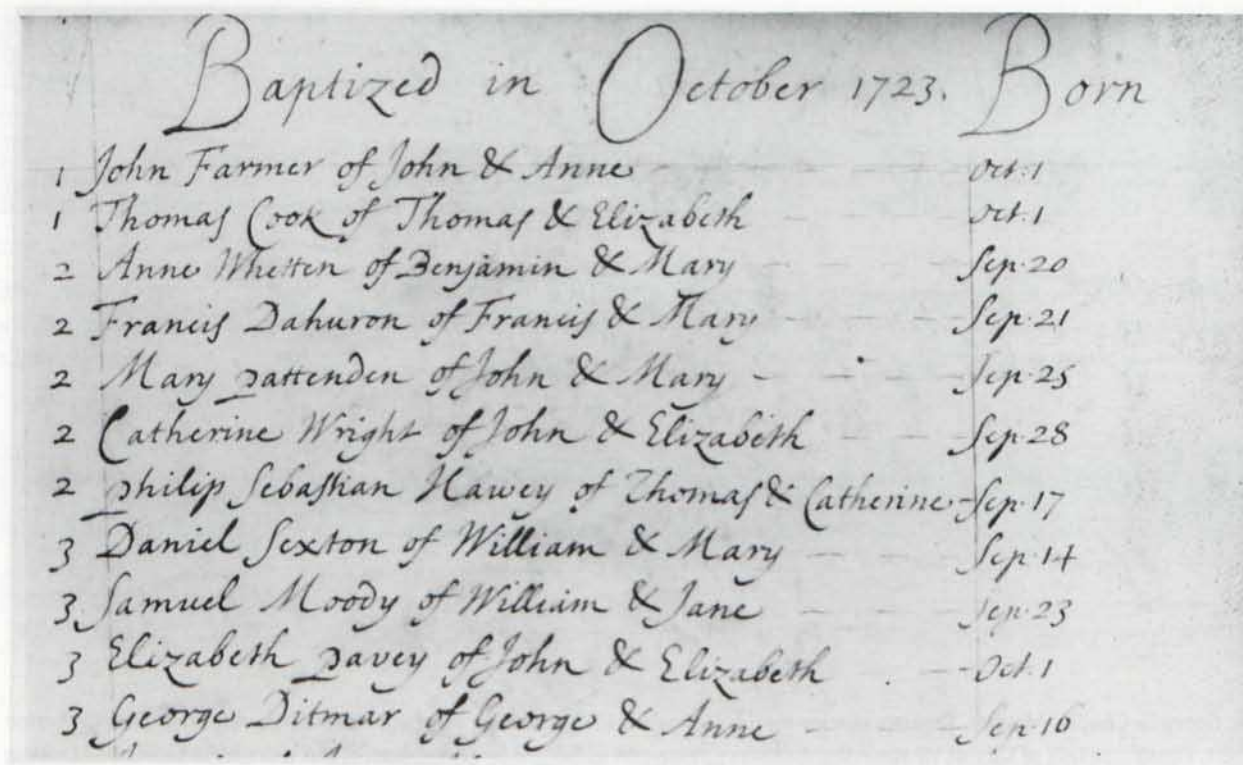 Baptized in October 1723. Born
1 John Farmer of John & Anne Oct. 1
1 Thomas Cook of Thomas & Elizabeth Oct. 1
2 Anne Whetten of Benjamin & Mary Sep. 20
2 Francis Dahuron of Francis & Mary Sep. 21
2 Mary Pattenden of John & Mary Sep. 25
2 Catherine Wright of John & Elizabeth Sep. 28
2 Philip Sebastian Hawey of Thomas & Catherine Sep. 17
3 Daniel Sexton of William & Mary Sep. 14
3 Samuel Moody of William & Jane Sep. 23
3 Elizabeth Pavey of John & Elizabeth Oct. 1
3 George Ditmar of George & Anne Sep. 16